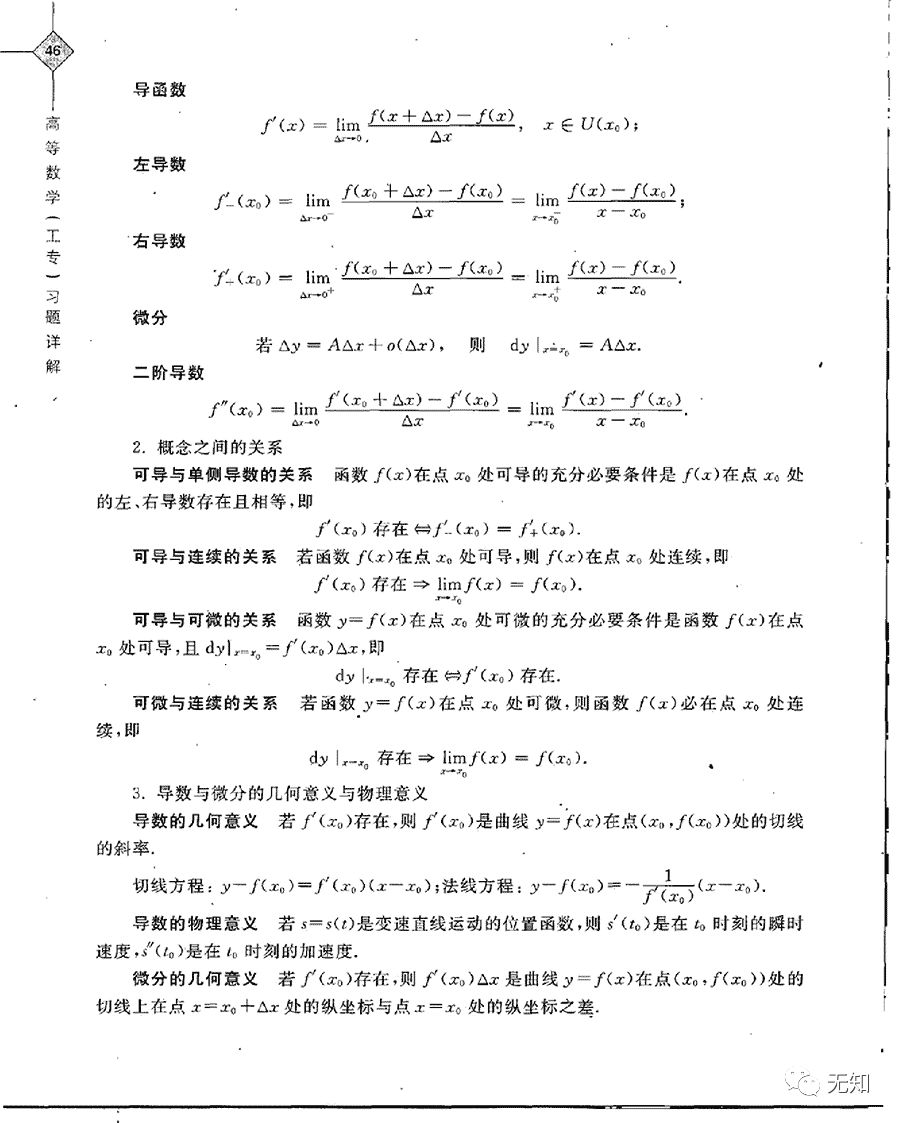 46
高等数学(工专)习题详解
导函数
f′(x) = lim_{Δx→0} \frac{f(x+Δx)-f(x)}{Δx}, x∈U(x₀);
左导数
f′₋(x₀) = lim_{Δx→0⁻} \frac{f(x₀+Δx)-f(x₀)}{Δx} = lim_{x→x₀⁻} \frac{f(x)-f(x₀)}{x-x₀};
右导数
f′₊(x₀) = lim_{Δx→0⁺} \frac{f(x₀+Δx)-f(x₀)}{Δx} = lim_{x→x₀⁺} \frac{f(x)-f(x₀)}{x-x₀}.
微分
若 Δy = AΔx+o(Δx), 则 dy|_{x=x₀} = AΔx.
二阶导数
f″(x₀) = lim_{Δx→0} \frac{f′(x₀+Δx)-f′(x₀)}{Δx} = lim_{x→x₀} \frac{f′(x)-f′(x₀)}{x-x₀}.
2. 概念之间的关系
可导与单侧导数的关系 函数 f(x)在点 x₀ 处可导的充分必要条件是 f(x)在点 x₀ 处
的左、右导数存在且相等,即
f′(x₀) 存在⇔f′₋(x₀) = f′₊(x₀).
可导与连续的关系 若函数 f(x)在点 x₀ 处可导,则 f(x)在点 x₀ 处连续,即
f′(x₀) 存在⇒ lim_{x→x₀} f(x) = f(x₀).
可导与可微的关系 函数 y=f(x)在点 x₀ 处可微的充分必要条件是函数 f(x)在点
x₀ 处可导,且 dy|_{x=x₀}=f′(x₀)Δx,即
dy|_{x=x₀} 存在⇔f′(x₀) 存在.
可微与连续的关系 若函数 y=f(x)在点 x₀ 处可微,则函数 f(x)必在点 x₀ 处连
续,即
dy|_{x=x₀} 存在⇒ lim_{x→x₀} f(x) = f(x₀).
3. 导数与微分的几何意义与物理意义
导数的几何意义 若 f′(x₀)存在,则 f′(x₀)是曲线 y=f(x)在点(x₀,f(x₀))处的切线
的斜率.
切线方程: y-f(x₀)=f′(x₀)(x-x₀);法线方程: y-f(x₀)=-\frac{1}{f′(x₀)}(x-x₀).
导数的物理意义 若 s=s(t)是变速直线运动的位置函数,则 s′(t₀)是在 t₀ 时刻的瞬时
速度,s″(t₀)是在 t₀ 时刻的加速度.
微分的几何意义 若 f′(x₀)存在,则 f′(x₀)Δx 是曲线 y=f(x)在点(x₀,f(x₀))处的
切线上在点 x=x₀+Δx 处的纵坐标与点 x=x₀ 处的纵坐标之差.
无知